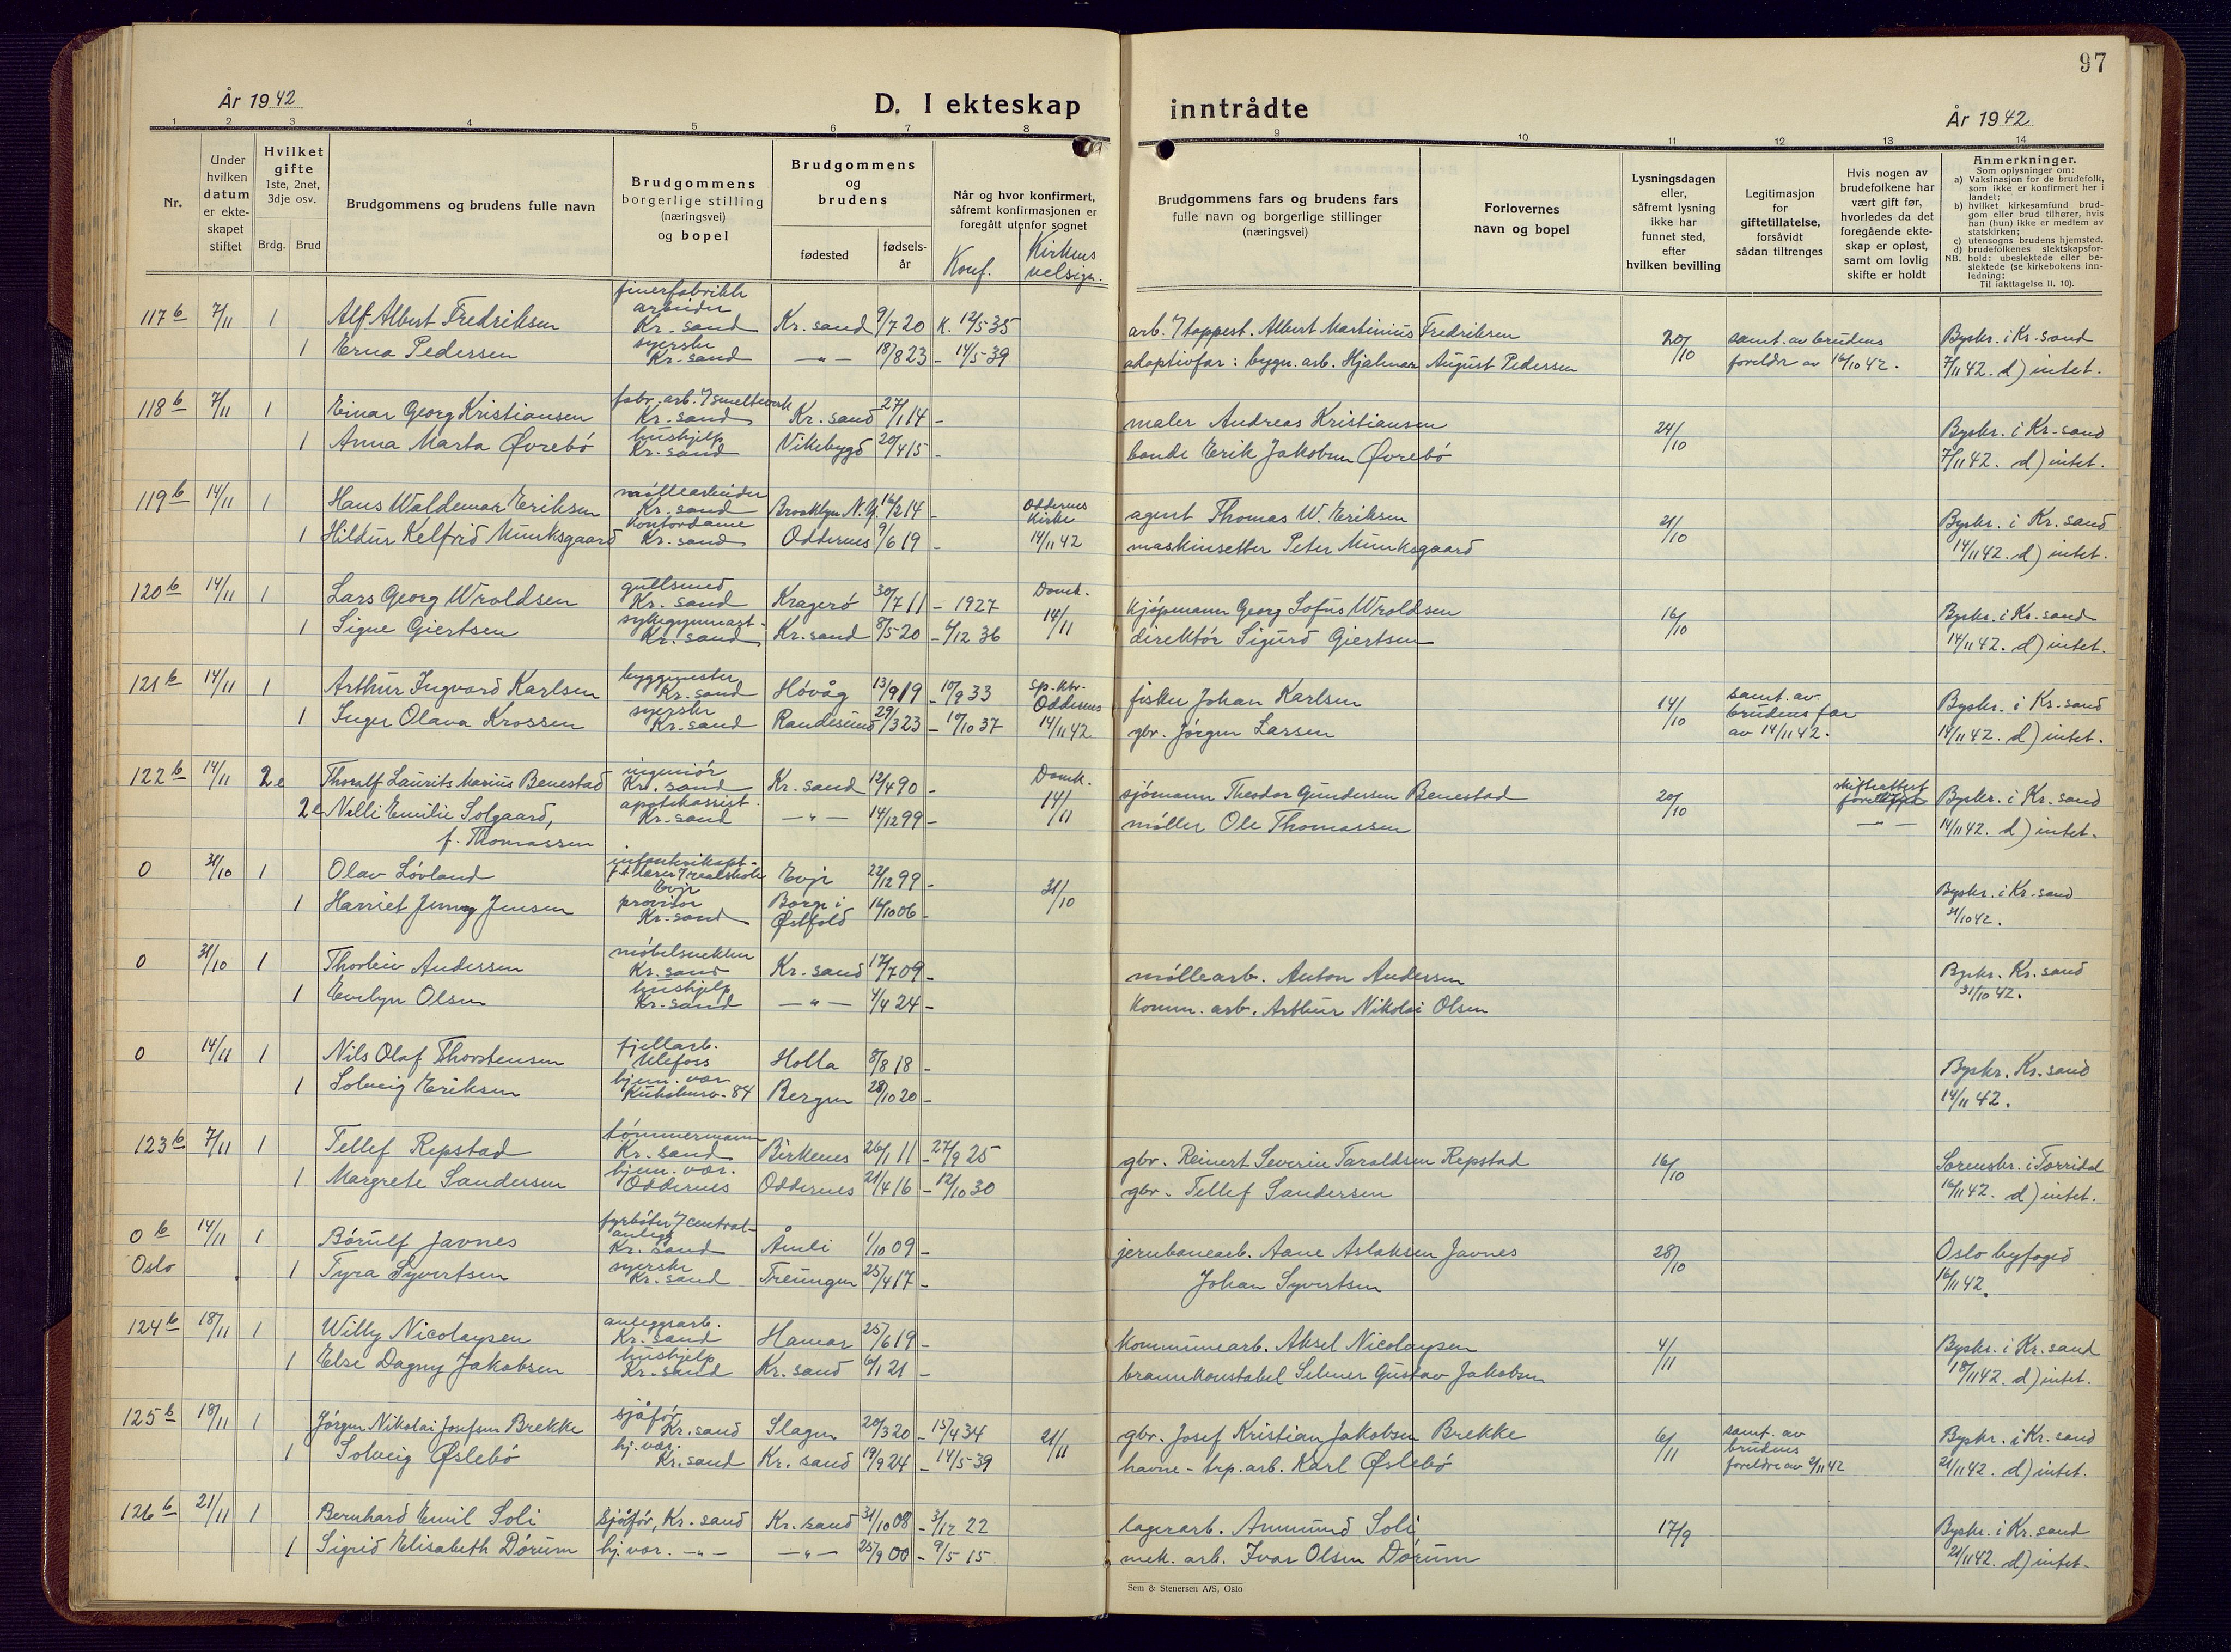 97
År 1942
D. I ekteskap inntrådte
År 1942
1 2 3 4 5 6 7 8 9 10 11 12 13 14
Nr.
Under hvilken datum er ekteskapet stiftet
Hvilket gifte 1ste, 2net, 3dje osv.
Brdg. Brud
Brudgommens og brudens fulle navn
Brudgommens borgerlige stilling (næringsvei) og bopel
Brudgommens og brudens
fødested
fødsels-år
Når og hvor konfirmert, såfremt konfirmasjonen er foregått utenfor sognet
Konf.
Kirkens velsign.
Brudgommens fars og brudens fars fulle navn og borgerlige stillinger (næringsvei)
Forlovernes navn og bopel
Lysningsdagen eller, såfremt lysning ikke har funnet sted, efter hvilken bevilling
Legitimasjon for giftetillatelse, forsåvidt sådan tiltrenges
Hvis nogen av brudefolkene har vært gift før, hvorledes da det foregående ekteskap er opløst, samt om lovlig skifte er holdt
Anmerkninger.
Som oplysninger om:
a) Vaksinasjon for de brudefolk, som ikke er konfirmert her i landet;
b) hvilket kirkesamfund brudgom eller brud tilhører, hvis han (hun) ikke er medlem av statskirken;
c) utensogns brudens hjemsted.
d) brudefolkenes slektskapsforhold: ubeslektede eller beslektede (se kirkebokens innledning;
NB. Til iakttagelse II, 10).
117 b 7/11 1 Alf Albert Fredriksen finerfabrikk arbeider Kr. sand Kr. sand 9/7 20 K. 12/5 35 arb. Albert Martinius Fredriksen 20/10 samt. av brudens Byskr. i Kr. sand
1 Erna Pedersen syerske Kr. sand — " — 18/8 23 - 14/5 39 adoptivfar: bygn. arb. Hjalmar August Pedersen foreldr av 16/10 42. 7/11 42. d) intet.
118 b 7/11 1 Einar Georg Kristiansen fabr. arb. v/ smelteverk Kr. sand Kr. sand 27/1 14 - maler Andreas Kristiansen 24/10 Byskr. i Kr. sand
1 Anna Marta Øvrebö hushjelp Kr. sand Vikebygd 20/4 15 - bonde Erik Jakobsen Øvrebö 7/11 42. d) intet.
119 b 14/11 1 Hans Waldemar Eriksen möllearbeider Kr. sand Brooklyn N.Y. 16/2 14 - Oddernes Kirke agent Thomas W. Eriksen 21/10 Byskr. i Kr. sand
1 Hildur Kelfrid Munksgaard Kontordame Kr. sand Oddernes 9/6 19 - 14/11 42 maskinsetter Peter Munksgaard 14/11 42. d) intet.
120 b 14/11 1 Lars Georg Wroldsen gullsmed Kr. sand Kragerö 30/7 11 - 1927 Domk. kjöpmann Georg Sofus Wroldsen 16/10 Byskr. i Kr. sand
1 Signe Giertsen sykegymnast Kr. sand Kr. sand 8/5 20 - 6/12 36 14/11 direktör Sigurd Giertsen 14/11 42. d) intet.
121 b 14/11 1 Arthur Ingvard Karlsen byggmester Kr. sand Hövåg 13/9 19 - 10/9 33 sp. kr. Oddernes fisker Johan Karlsen 14/10 samt. av brudens far Byskr. i Kr. sand
1 Inger Olava Krossen syerske Kr. sand Randesund 29/3 23 - 10/10 37 14/11 42 gbr. Jörgen Larsen av 14/11 42. 14/11 42. d) intet.
122 b 14/11 2e Thoralf Laurits Marius Benestad ingeniör Kr. sand Kr. sand 12/4 90 - Domk. sjömann Theodor Gundersen Benestad 20/10 skifteattest Byskr. i Kr. sand
2e Nelli Emilie Solgaard, apotekassist. Kr. sand — " — 14/12 99 - 14/11 möller Ole Thomassen — " — 14/11 42. d) intet.
f. Thomassen
0 31/10 1 Olav Lövland infanterikapt. Evje Evje 22/12 99 - 31/10 Byskr. i Kr. sand
1 Harriet Jenny Jensen provisor Kr. sand Borge i Østfold 16/10 06 - 31/10 42.
0 31/10 1 Thorleiv Andersen möbelsnekker Kr. sand Kr. sand 17/7 09 - möllearb. Anton Andersen Byskr. Kr. sand
1 Evelyn Olsen hushjelp Kr. sand — " — 4/4 24 - komm. arb. Arthur Nikolai Olsen 31/10 42.
0 14/11 1 Nils Olaf Thorstensen fjellarb. Ulefoss Holla 8/8 18 - Byskr. Kr. sand
1 Solveig Eriksen hjem. vær. Kuholmsv. 84 Bergen 28/10 20 - 14/11 42.
123 b 7/11 1 Tellef Repstad tömmermann Kr. sand Birkenes 26/1 11 - 27/9 25 gbr. Reinert Severin Taraldsen Repstad 16/10 Sorenskr. i Torridal
1 Margrete Sandersen hjem. vær. Oddernes Oddernes 21/4 16 - 12/10 30 gbr. Tellef Sandersen 16/11 42. d) intet.
0 b 14/11 1 Börulf Javnes fyrböter v/ centralanlegg Kr. sand Åmli 1/10 09 - jernbanearb. Aane Aslaksen Javnes 28/10 Oslo byfoged
Oslo 1 Tyra Syvertsen syerske Kr. sand Treungen 25/4 17 - Johan Syvertsen 16/11 42.
124 b 18/11 1 Willy Nicolaysen anleggsarb. Kr. sand Hamar 25/6 19 - kommunearb. Aksel Nicolaysen 4/11 Byskr. i Kr. sand
1 Else Dagny Jakobsen hushjelp Kr. sand Kr. sand 6/1 21 - brannkonstabel Selmer Gustav Jakobsen 18/11 42. d) intet.
125 b 18/11 1 Jörgen Nikolai Josefsen Brekke sjåför Kr. sand Slagen 20/3 20 - 15/4 34 21/11 gbr. Josef Kristian Jakobsen Brekke 6/11 samt. av brudens Byskr. i Kr. sand
1 Solveig Øslebö hj. vær. Kr. sand Kr. sand 19/9 24 - 14/5 39 havne- trp. arb. Karl Øslebö foreldre av 2/11 42 21/11 42. d) intet.
126 b 21/11 1 Bernhard Emil Soli sjåför, Kr. sand Kr. sand 31/10 08 - 3/12 22 lagerarb. Ammund Soli 17/9 Byskr. i Kr. sand
1 Sigrid Elisabeth Dörum hj. vær. — " — — " — 25/9 00 - 9/5 15 mek. arb. Ivar Olsen Dörum 21/11 42. d) intet.
Sem & Stenersen A/S, Oslo